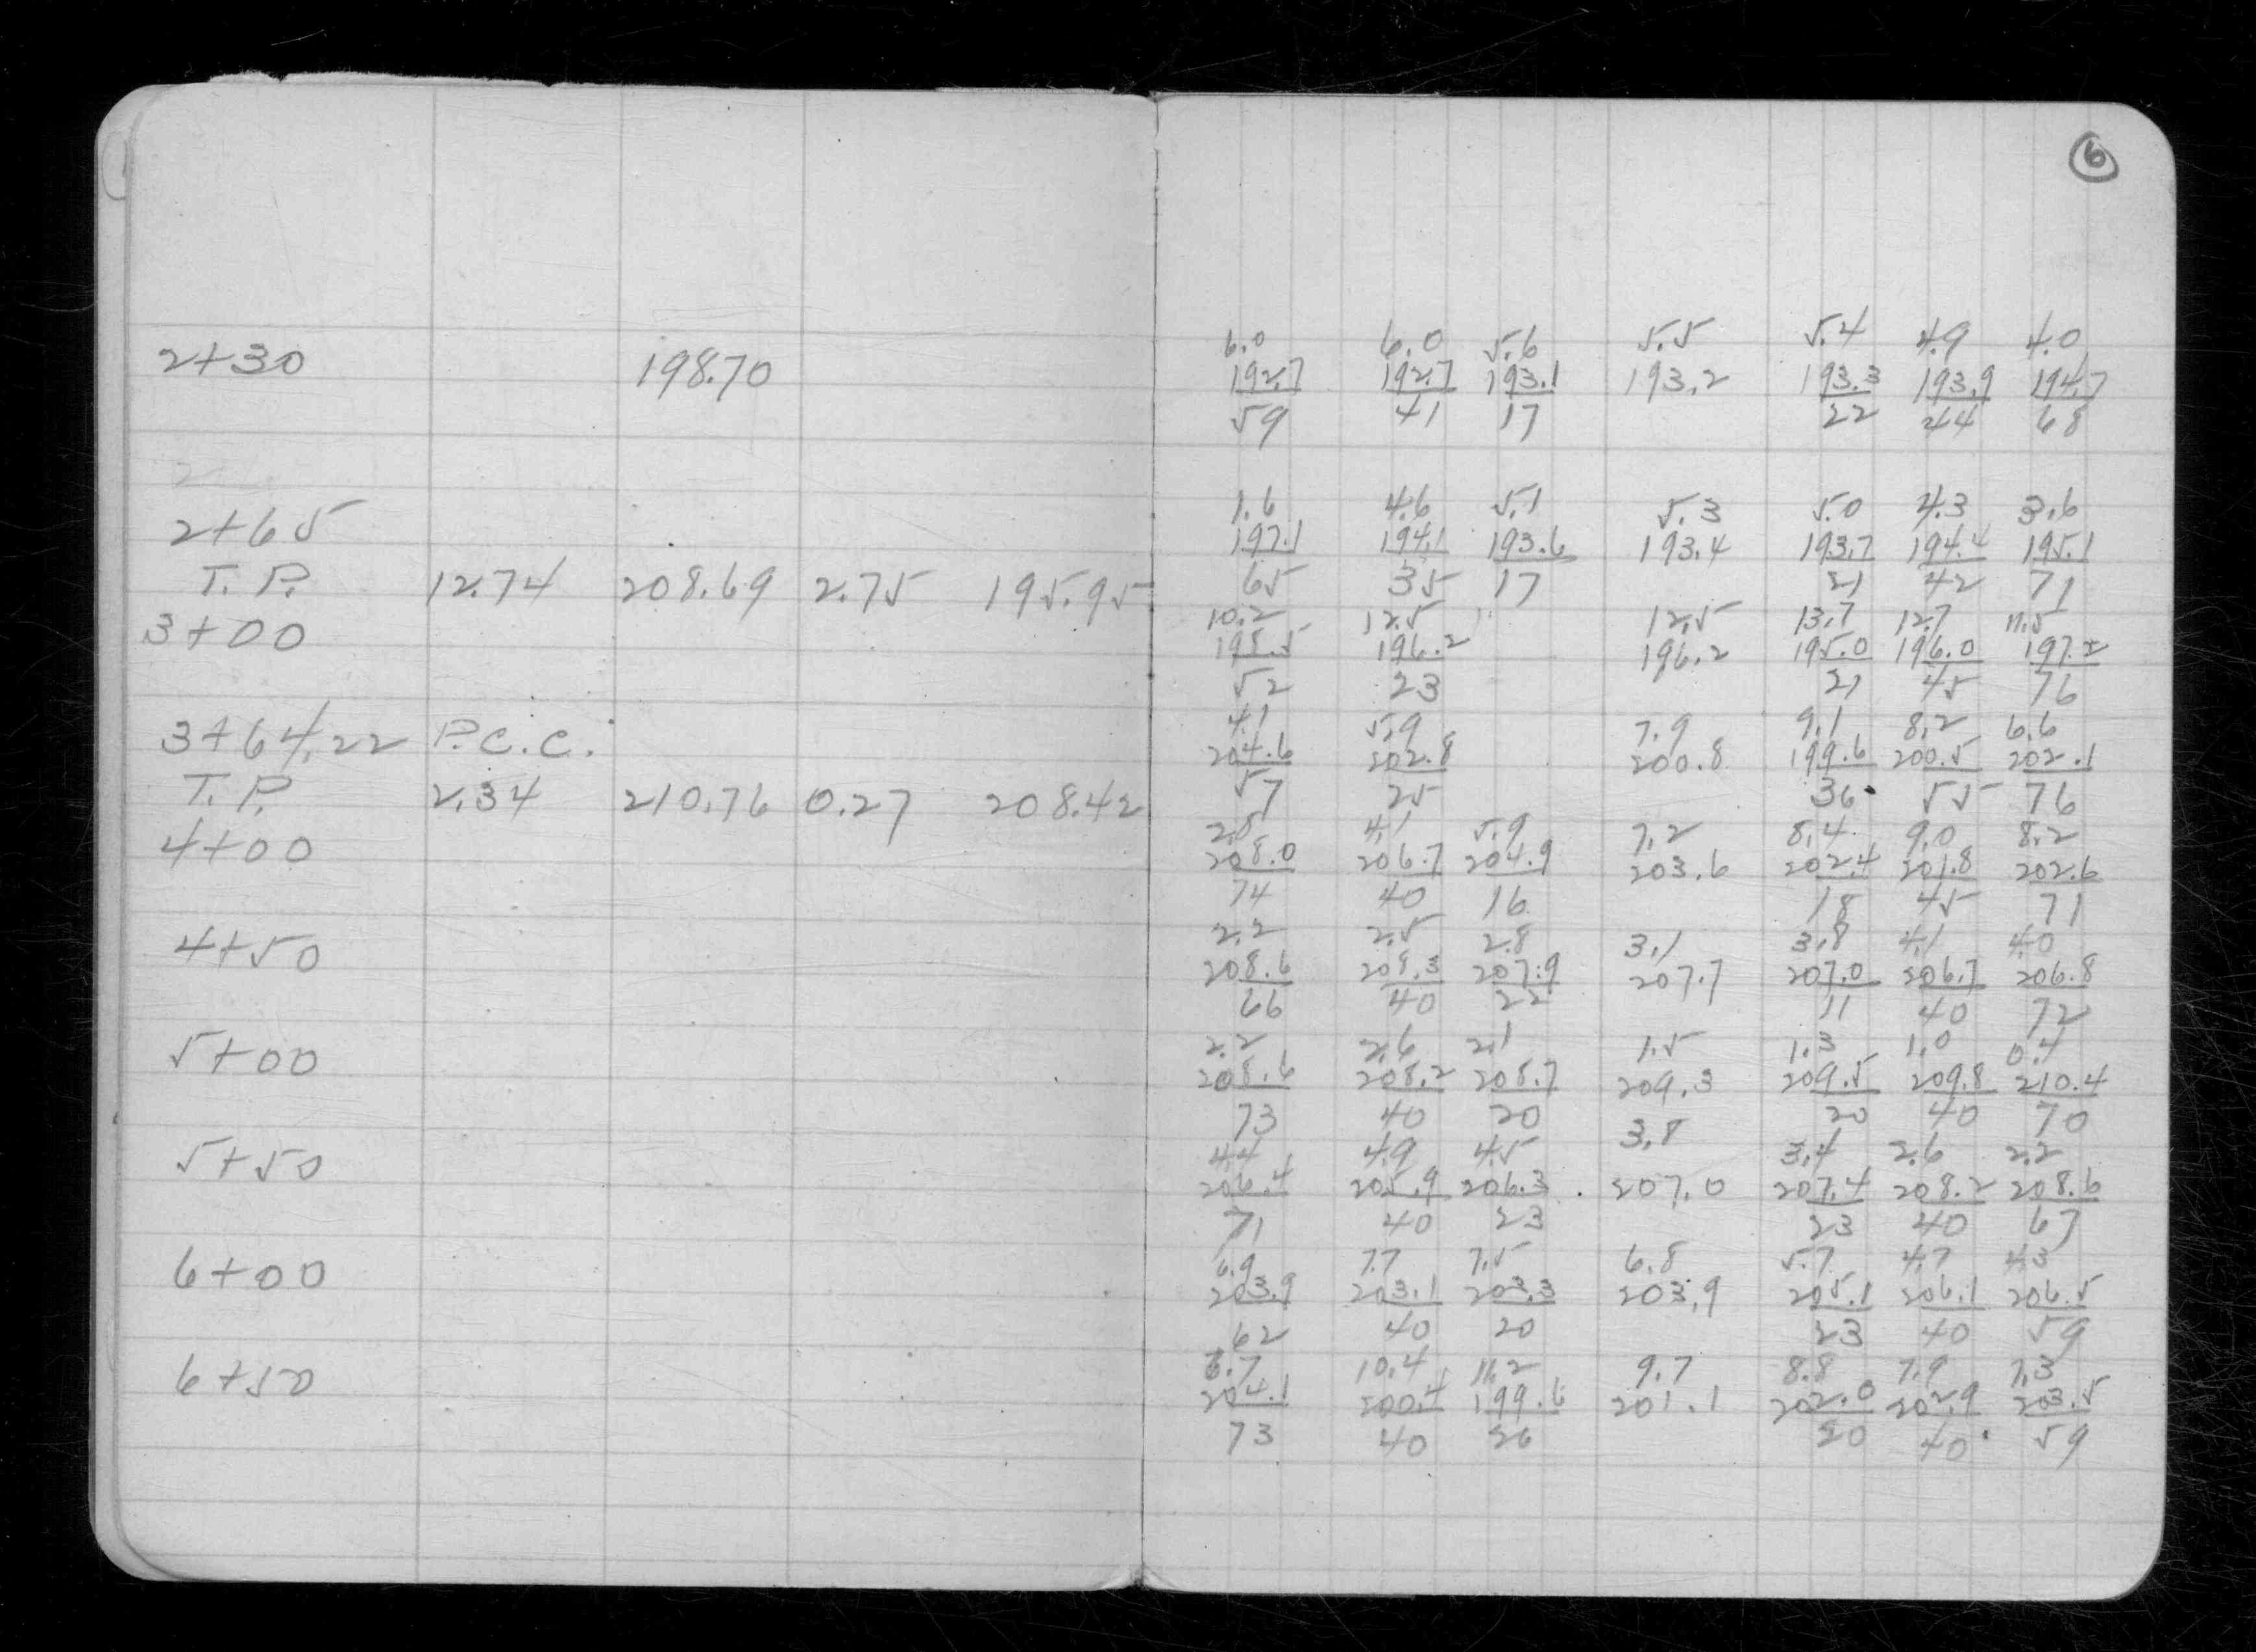 6
6.0 6.0 5.6 5.5 5.4 4.9 4.0
2+30 198.70 192.7 192.7 193.1 193.2 193.3 193.9 194.7
59 41 17 22 44 68
1.6 4.6 5.1 5.3 5.0 4.3 3.6
2+65 197.1 194.1 193.6 193.4 193.7 194.4 195.1
T.P. 12.74 208.69 2.75 195.95 65 35 17 21 42 71
10.2 12.5 12.5 13.7 12.7 11.5
3+00 198.5 196.2 196.2 195.0 196.0 197.2
52 23 21 45 76
4.1 5.9 7.9 9.1 8.2 6.6
3+64.22 P.C.C. 204.6 202.8 200.8 199.6 200.5 202.1
T.P. 2.34 210.76 0.27 208.42 57 25 36 55 76
2.8 4.1 5.9 7.2 8.4 9.0 8.2
4+00 208.0 206.7 204.9 203.6 202.4 201.8 202.6
74 40 16 18 45 71
2.2 2.5 2.8 3.1 3.8 4.1 4.0
4+50 208.6 208.3 207.9 207.7 207.0 206.7 206.8
66 40 22 11 40 72
2.2 2.6 2.1 1.5 1.3 1.0 0.4
5+00 208.6 208.2 208.7 209.3 209.5 209.8 210.4
73 40 20 20 40 70
4.4 4.9 4.5 3.8 3.4 2.6 2.2
5+50 206.4 205.9 206.3 207.0 207.4 208.2 208.6
71 40 23 23 40 67
6.9 7.7 7.5 6.8 5.7 4.7 4.3
6+00 203.9 203.1 203.3 203.9 205.1 206.1 206.5
62 40 20 23 40 59
6.7 10.4 11.2 9.7 8.8 7.9 7.3
6+50 204.1 200.4 199.6 201.1 202.0 202.9 203.5
73 40 26 20 40 59